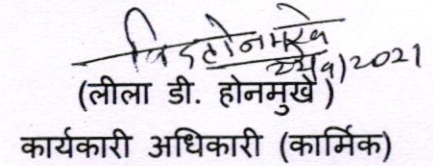 (लीला डी. होनमुखे)
कार्यकारी अधिकारी (कार्मिक)